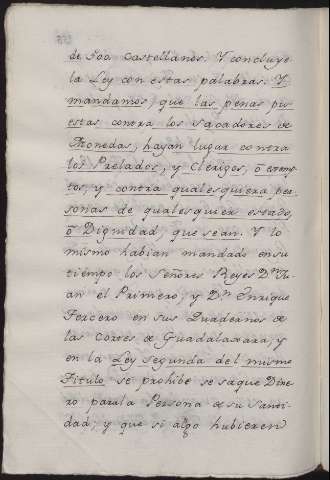 de Soo Castellanos. Y concluye
la Ley con estas palabras. Y
mandamos, que las penas pu
estas contra los Sacadores de
Monedas, hayan lugar contra
los Prelados, y Clerigos, ó exemp
tos, y contra qualesquiera per
sonas de qualesquier estado,
ó Dignidad, que sean. Y lo
mismo habian mandado en su
tiempo los Señores Reyes Dn Ju
an el Primero, y Dn Enrique
Tercero en sus Quadernos de
las Cortes de Guadalaxara, y
en la Ley segunda del mismo
Titulo se prohibe se saque Dine
ro para la Persona de su Santi
dad; y que si algo hubieren